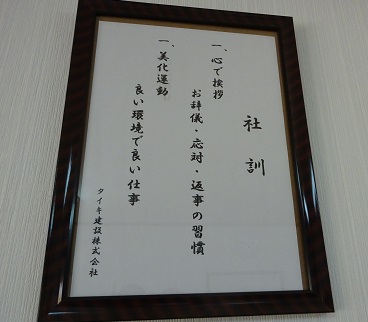 社訓
一、心で挨拶
お辞儀・応対・返事の習慣
一、美化運動
良い環境で良い仕事
タイキ建設株式会社